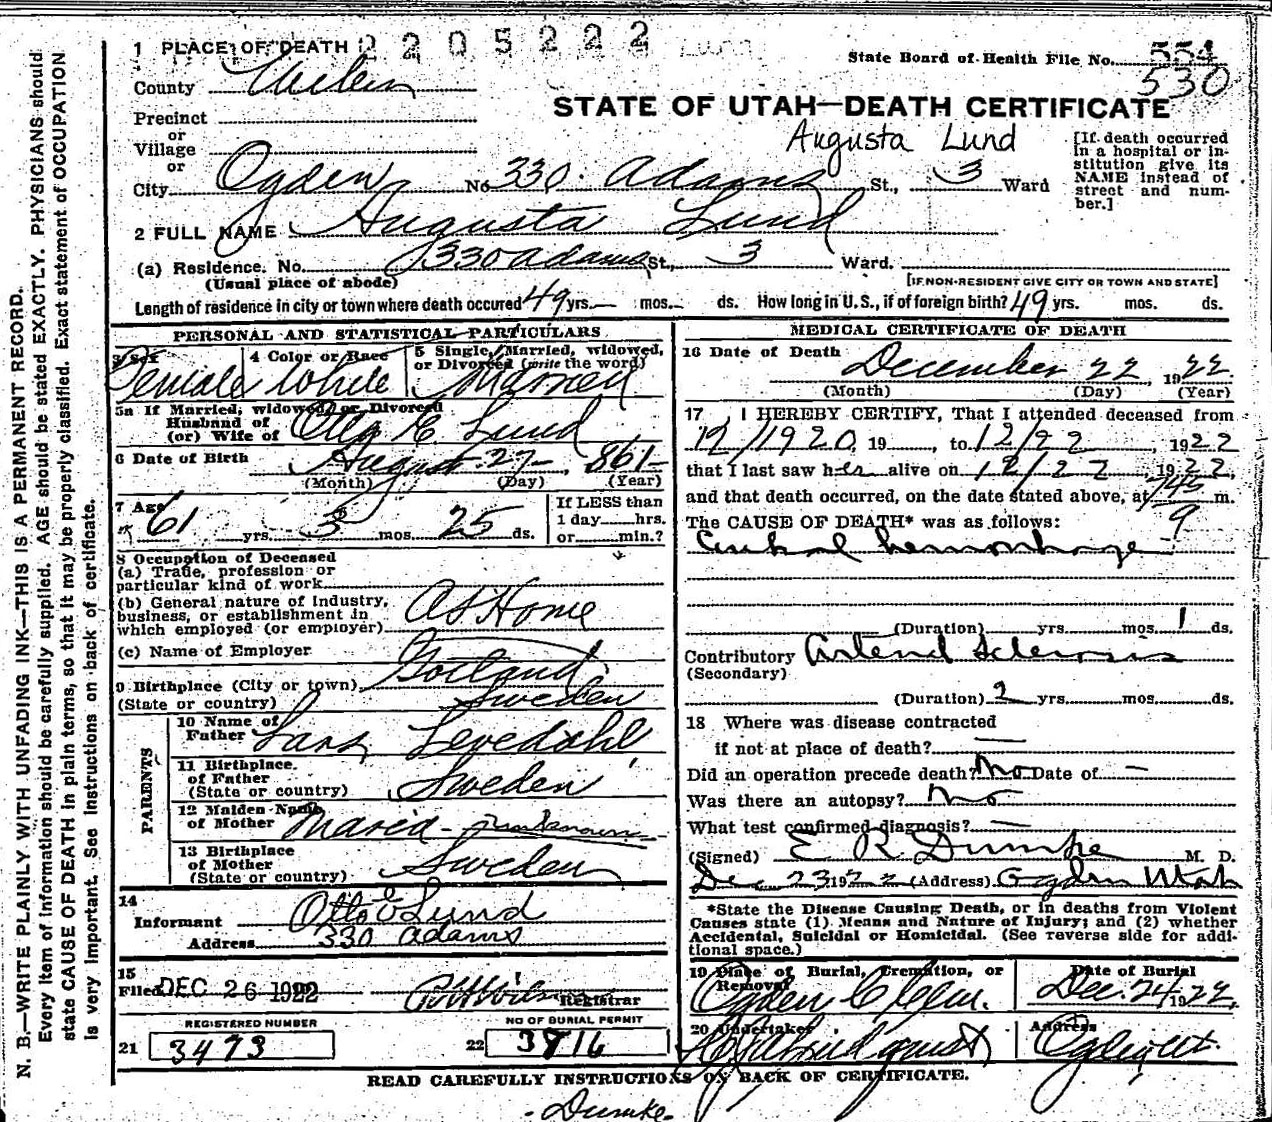 1 PLACE OF DEATH 2205222 Lund
State Board of Health File No. 554
530
County Weber
STATE OF UTAH—DEATH CERTIFICATE
Precinct
or
Village
or
Augusta Lund
City Ogden No 330 Adams St., 3 Ward
[If death occurred
in a hospital or in-
stitution give its
NAME instead of
street and num-
ber.]
2 FULL NAME Augusta Lund
(a) Residence. No. 330 Adams St., 3 Ward.
(Usual place of abode)
[IF NON-RESIDENT GIVE CITY OR TOWN AND STATE]
Length of residence in city or town where death occured 49 yrs.— mos.— ds. How long in U. S., if of foreign birth? 49 yrs. mos. ds.
PERSONAL AND STATISTICAL PARTICULARS
3 Sex 4 Color or Race 5 Single, Married, widowed,
or Divorced (write the word)
Female White Married
5a If Married, widowed or Divorced
Husband of
(or) Wife of Otto E. Lund
6 Date of Birth August 27 - , 1861-
(Month) (Day) (Year)
7 Age
61 yrs. 3 mos. 25 ds.
If LESS than
1 day hrs.
or min.?
8 Occupation of Deceased
(a) Trade, profession or
particular kind of work
(b) General nature of Industry,
business, or establishment in
which employed (or employer) At Home
(c) Name of Employer
9 Birthplace (City or town) Gotland
(State or country) Sweden
PARENTS
10 Name of
Father Lars Levedahl
11 Birthplace
of Father
(State or country) Sweden
12 Maiden Name
of Mother Maria - unknown
13 Birthplace
of Mother
(State or country) Sweden
14
Informant Otto E Lund
Address 330 Adams
15
Filed DEC 26 1922 Registrar
REGISTERED NUMBER
21 3473
NO OF BURIAL PERMIT
22 3816
MEDICAL CERTIFICATE OF DEATH
16 Date of Death December 22, 1922.
(Month) (Day) (Year)
17 I HEREBY CERTIFY, That I attended deceased from
12/1920, 19 , to 12/22, 1922
that I last saw her alive on 12/22, 1922,
and that death occurred, on the date stated above, at 745 m.
The CAUSE OF DEATH* was as follows:
9
Cerebral hemorrhage
(Duration) yrs. mos. 1 ds.
Contributory Arterial Sclerosis
(Secondary)
(Duration) 2 yrs. mos. ds.
18 Where was disease contracted
if not at place of death? —
Did an operation precede death? No Date of —
Was there an autopsy? No
What test confirmed diagnosis? —
(Signed) E R Dumke M. D.
Dec 23 1922 (Address) Ogden Utah
*State the Disease Causing Death, or in deaths from Violent
Causes state (1) Means and Nature of Injury; and (2) whether
Accidental, Suicidal or Homicidal. (See reverse side for addi-
tional space.)
19 Place of Burial, Cremation, or
Removal
Ogden C Cem.
Date of Burial
Dec. 24 1922
20 Undertaker
Address
Ogden, Ut.
READ CAREFULLY INSTRUCTIONS ON BACK OF CERTIFICATE.
- Dumke -
N. B.—WRITE PLAINLY WITH UNFADING INK—THIS IS A PERMANENT RECORD.
Every item of information should be carefully supplied. AGE should be stated EXACTLY. PHYSICIANS should
state CAUSE OF DEATH in plain terms, so that it may be properly classified. Exact statement of OCCUPATION
is very important. See instructions on back of certificate.